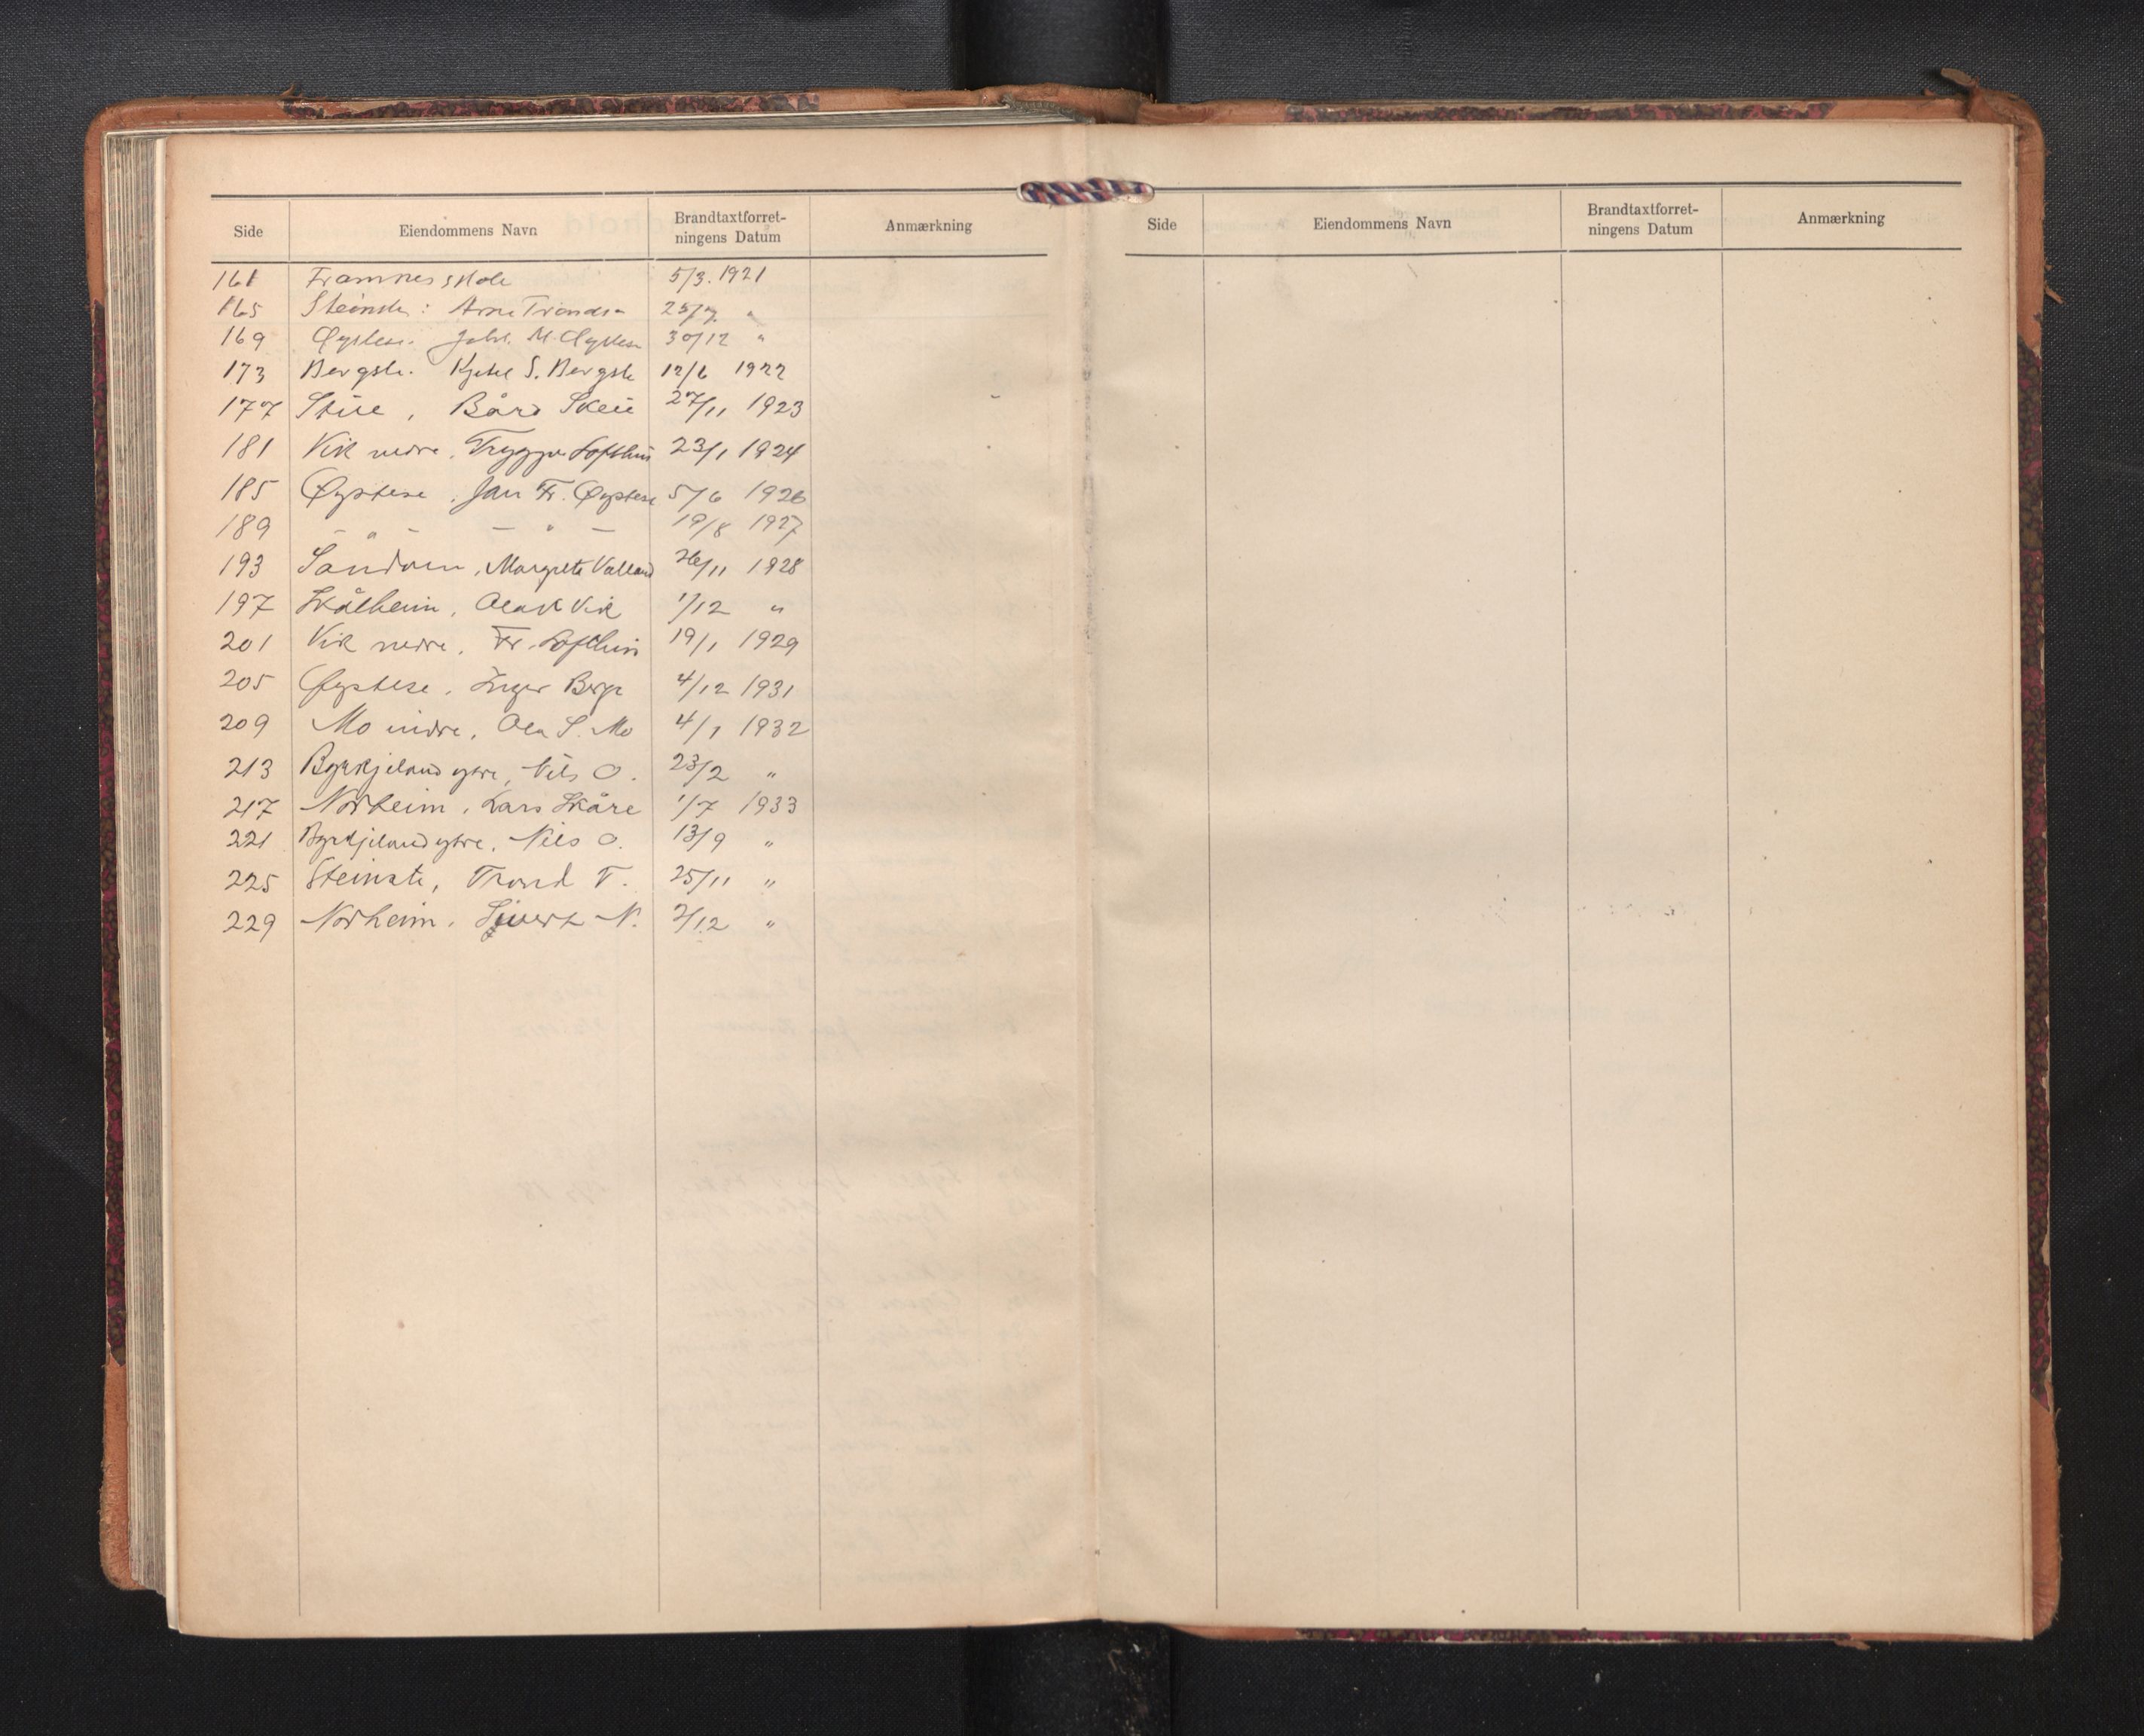 Side Eiendommens Navn Brandtaxtforret-ningens Datum Anmærkning
161 Framnes skole 5/3. 1921
165 Steinstø: Arne Trondsn 25/7. "
169 Øystese. Joh. M. Øystese 30/12 "
173 Bergstø. Kjetil S. Bergstø 12/6 1922
177 Bård Skeie 27/11 1923
181 Vik nedre, Trygve Lofthus 23/1 1924
185 Øystese, Jan Fr. Øystese 5/6 1926
189 - " - - " - 19/8 1927
193 Sandven, Margrete Valland 26/11 1928
197 Skålheim, Olav K Vik 1/12 "
201 Vik nedre, Fr. Lofthus 19/1 1929
205 Øystese, Inger Berge 4/12 1931
209 Mo indre, Ola S. Mo 4/1 1932
213 Byrkjeland ytre, Nils O. 23/2 "
217 Norheim, Lars Skåre 1/7 1933
221 Byrkjeland ytre, Nils O. 13/9 "
225 Steinstø, Trond T. 25/11 "
229 Norheim, Sjovert N. 2/12 "
Side Eiendommens Navn Brandtaxtforret-ningens Datum Anmærkning